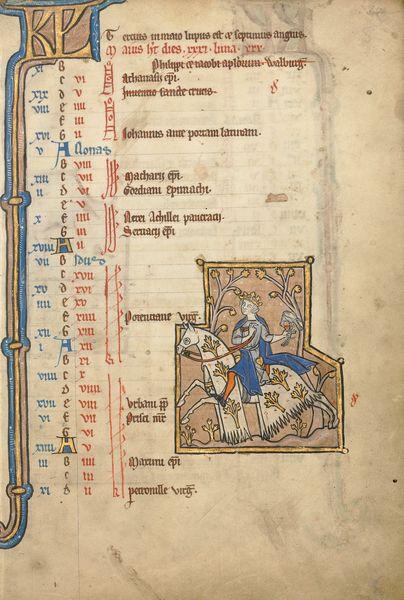 KL Tercius in maio lupus est et septimus anguis.
Maius ht dies. xxxi. luna. xxx.
xi B Philippi et iacobi aplorum. Walburg.
C vi Athanasii epi.
xix D v Inventio sancte crucis.
viii E iiii
F iii
xvi G ii Iohannis ante portam latinam.
v A Nonas
B viii
xiii C vii Macharii epi.
ii D vi Gordiani epimachi.
E v
x F iiii Nerei Achillei pancracii.
G iii Servacii epi.
xviii A ii
vii B Idus
C xvii
xv D xvi
iiii E xv
F xiiii Potentiane virg.
xii G xiii
i A xii
B xi
viiii C x
D viiii
xvii E viii Urbani pp
vi F vii Prisci mr
G vi
xiiii A v
iii B iiii Maximi epi
C iii
xi D ii petronille virg.